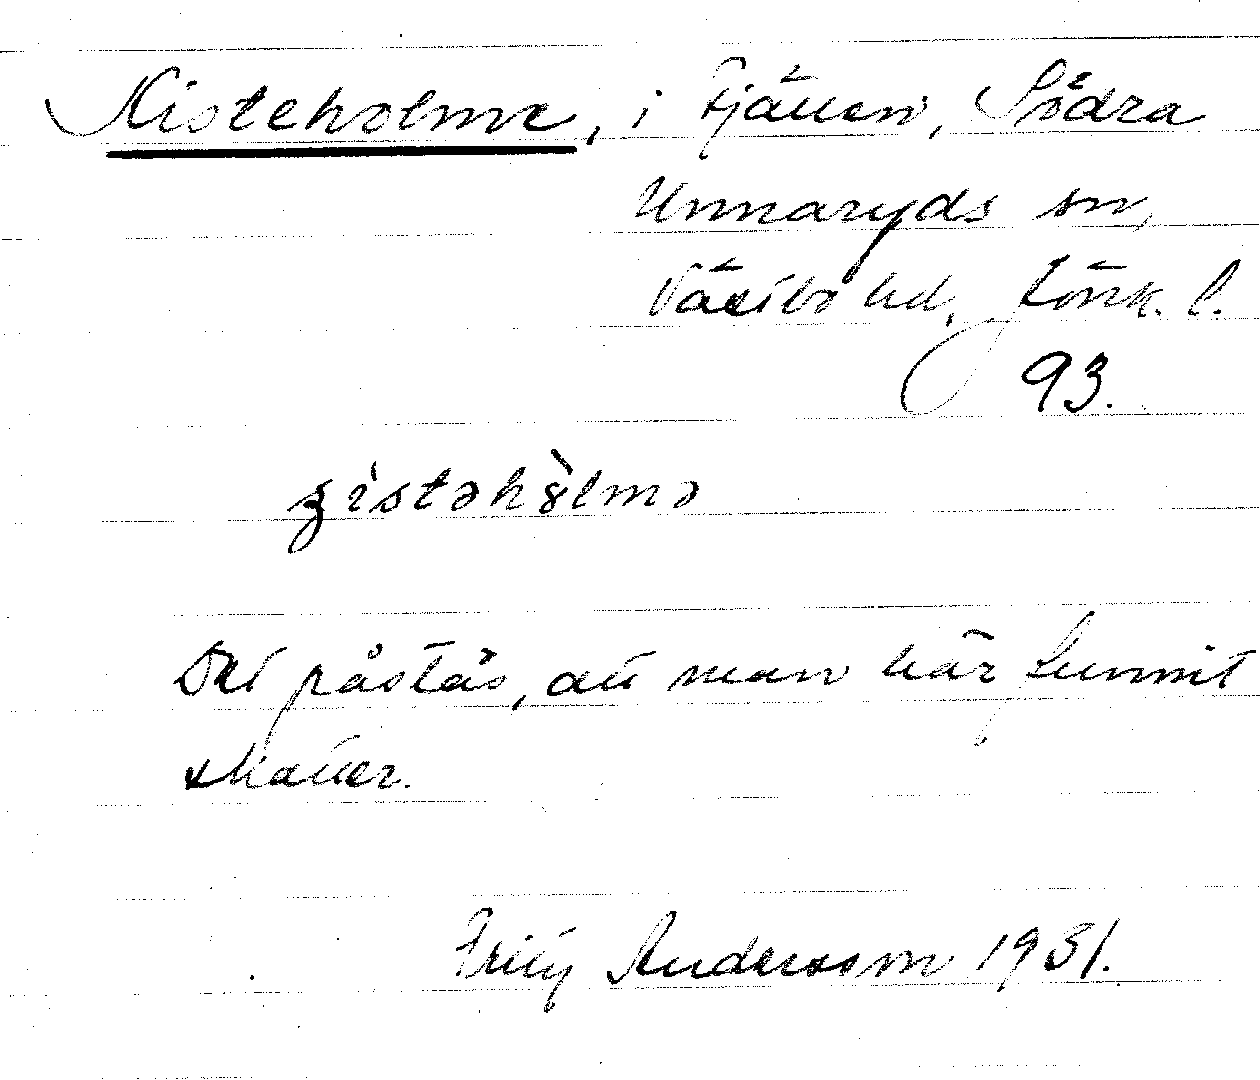 Kisteholme, i Fjällen, Södra
Unnaryds sn,
Västbo hd, Jönk. l.
93.
ʒ̀istəhòlmə
Det påstås, att man här funnit
skatter.
Andersson 1931.